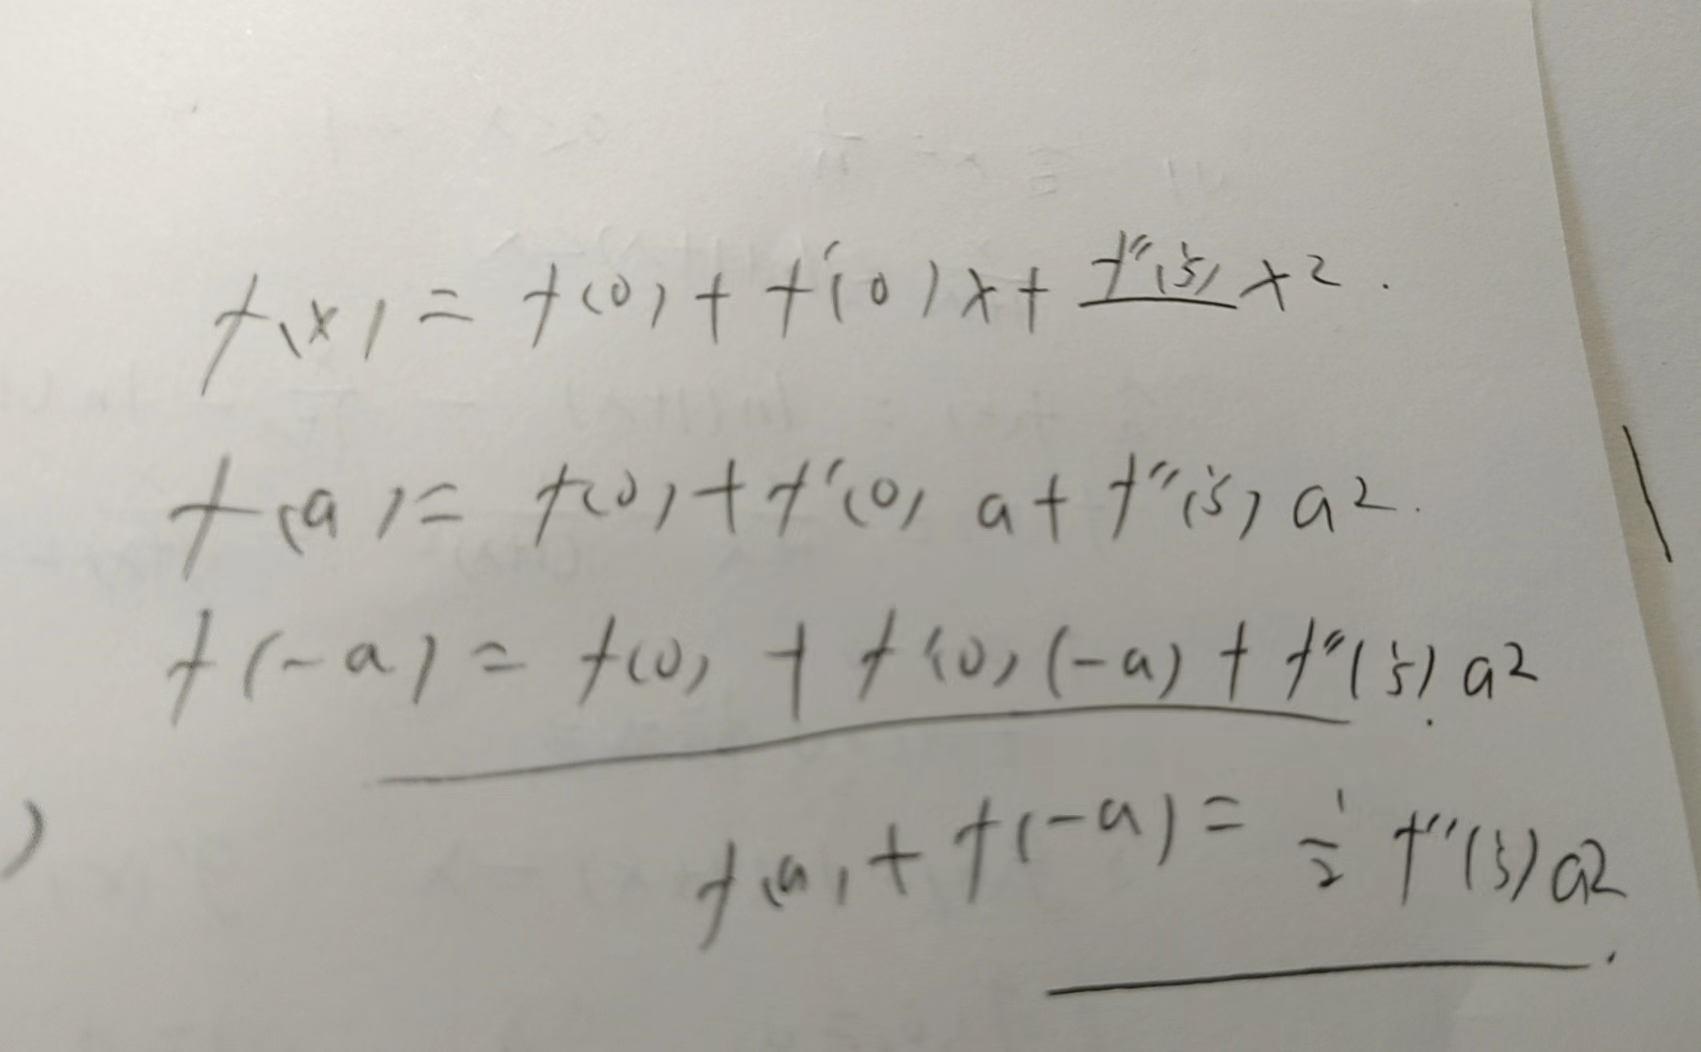 f(x) = f(0) + f'(0)x + f''(ξ) x².
f(a) = f(0) + f'(0) a + f''(ξ) a².
f(-a) = f(0) + f'(0)(-a) + f''(ξ) a²
f(a) + f(-a) = 1/2 f''(ξ) a²